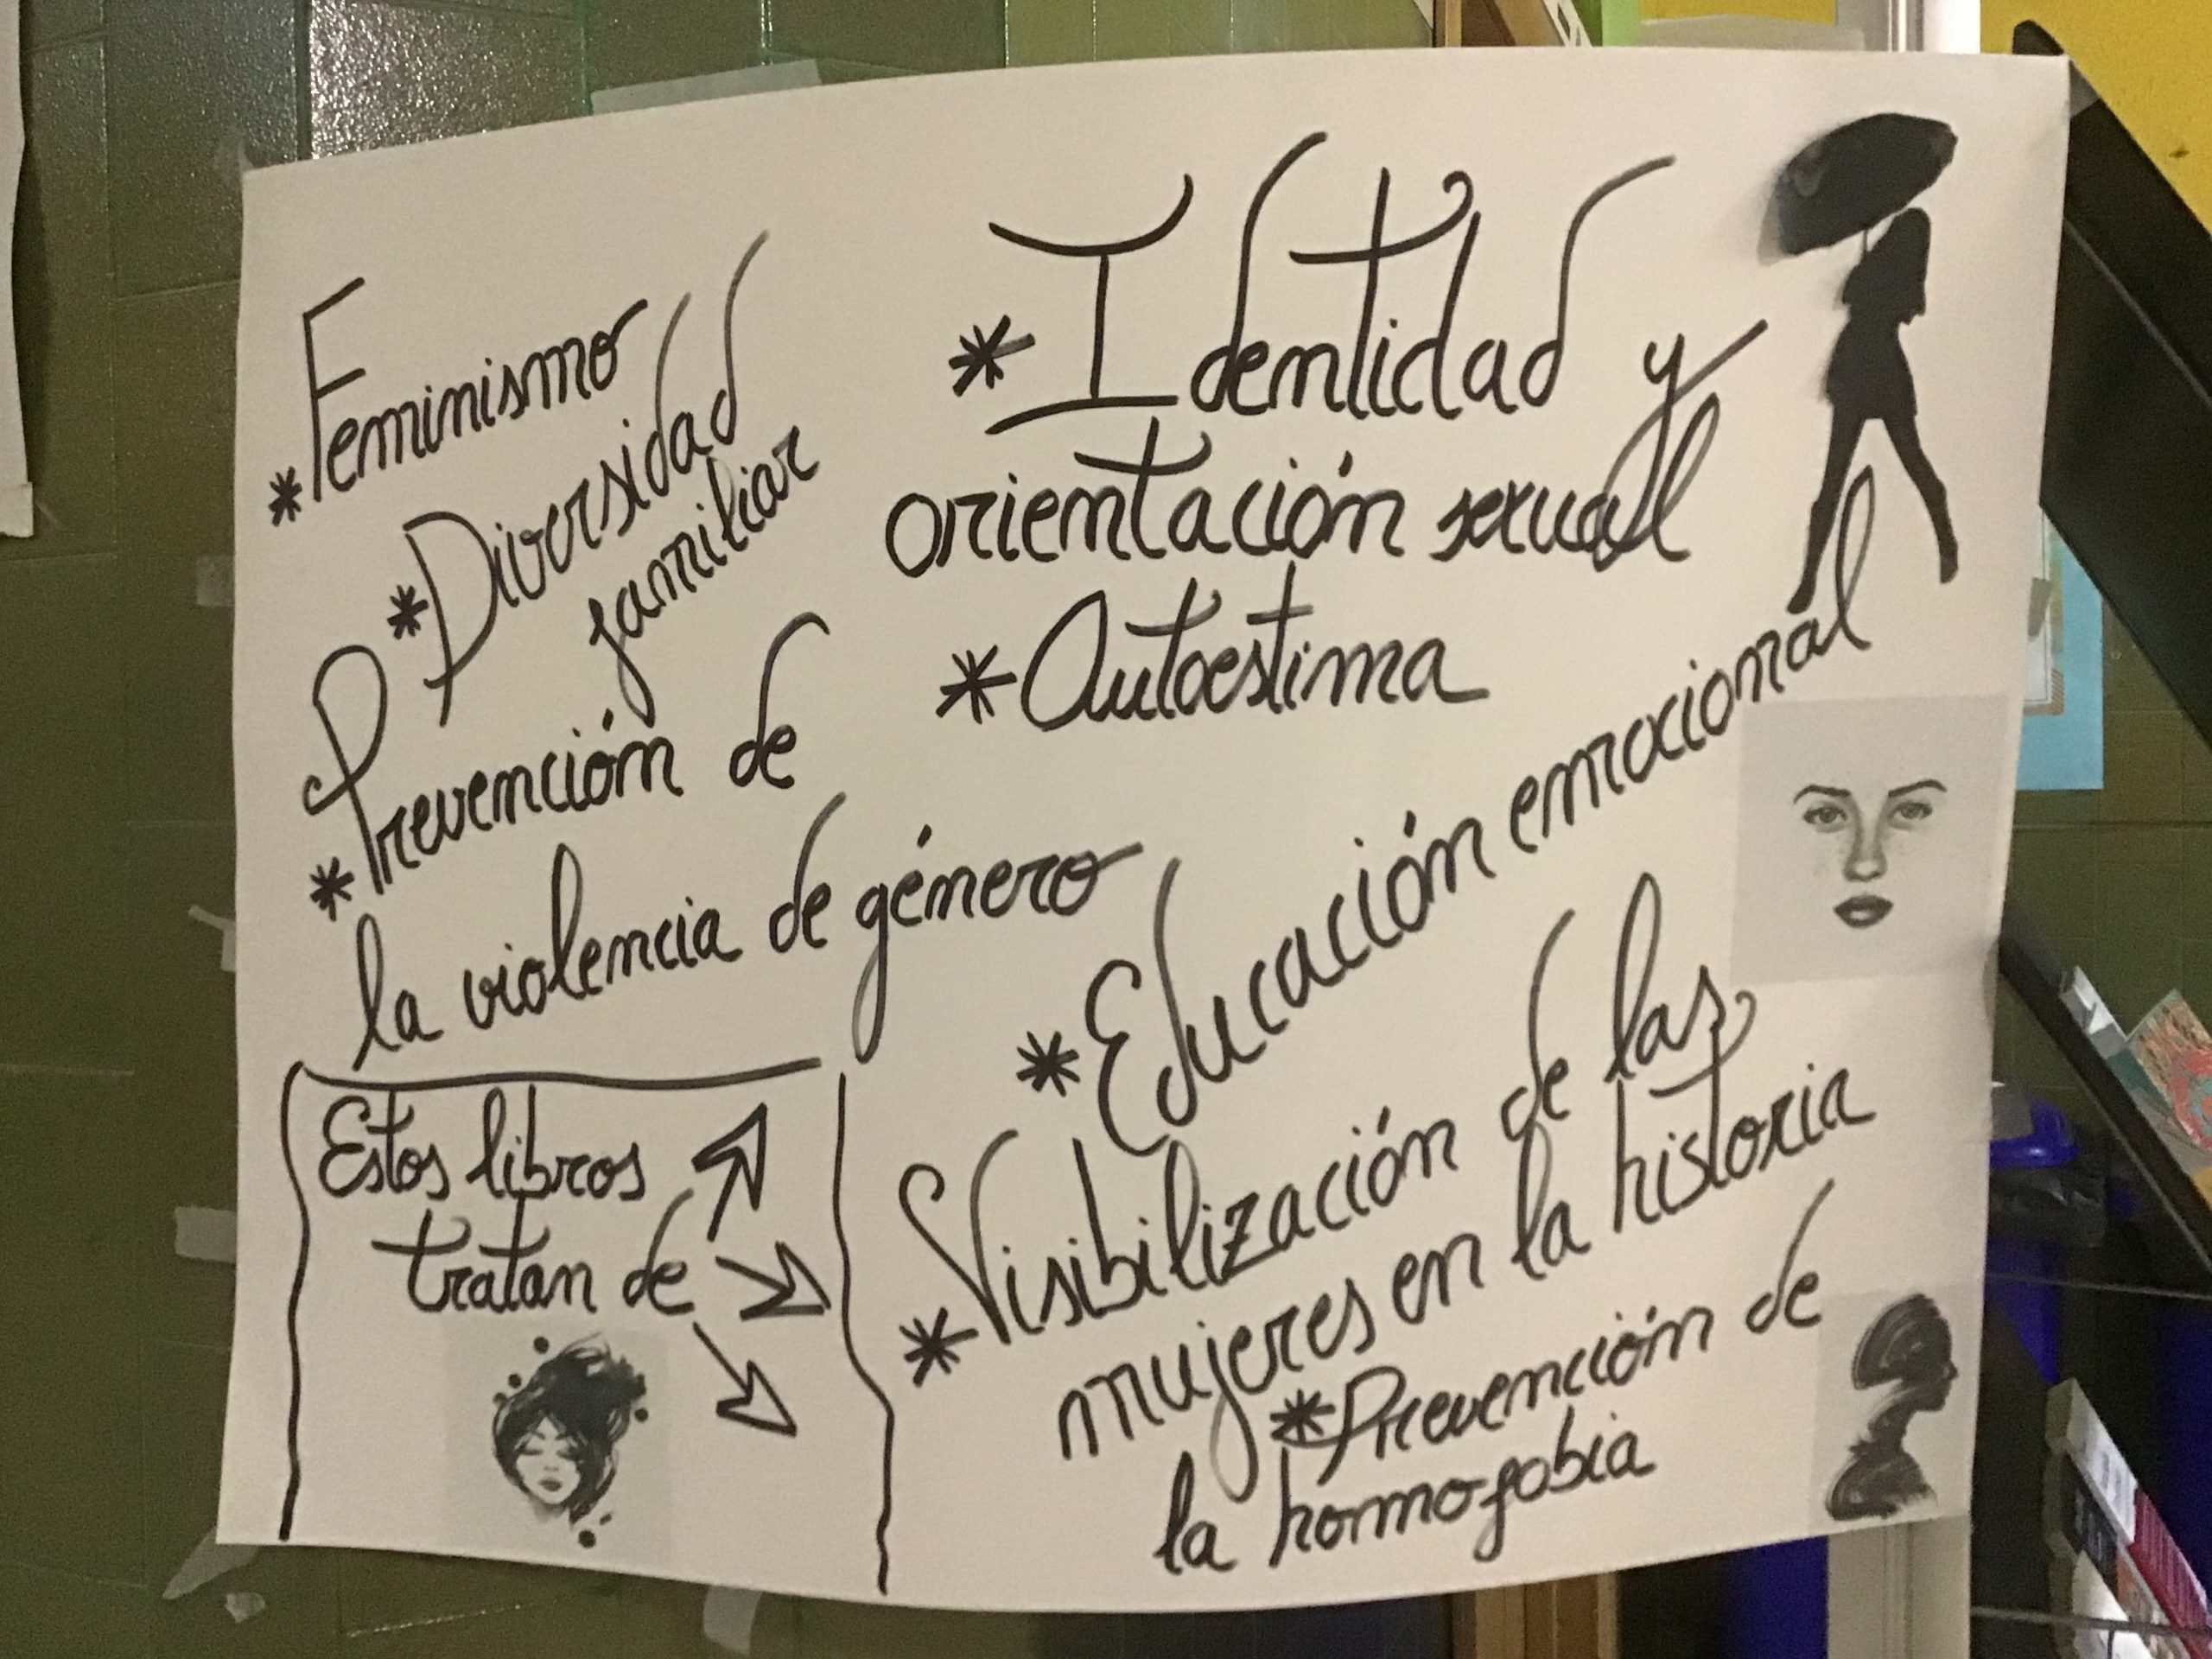 *Feminismo
*Diversidad
familiar
*Prevención de
la violencia de género
Estos libros
tratan de
*Identidad y
orientación sexual
*Autoestima
*Educación emocional
*Visibilización de las
mujeres en la historia
*Prevención de
la homofobia